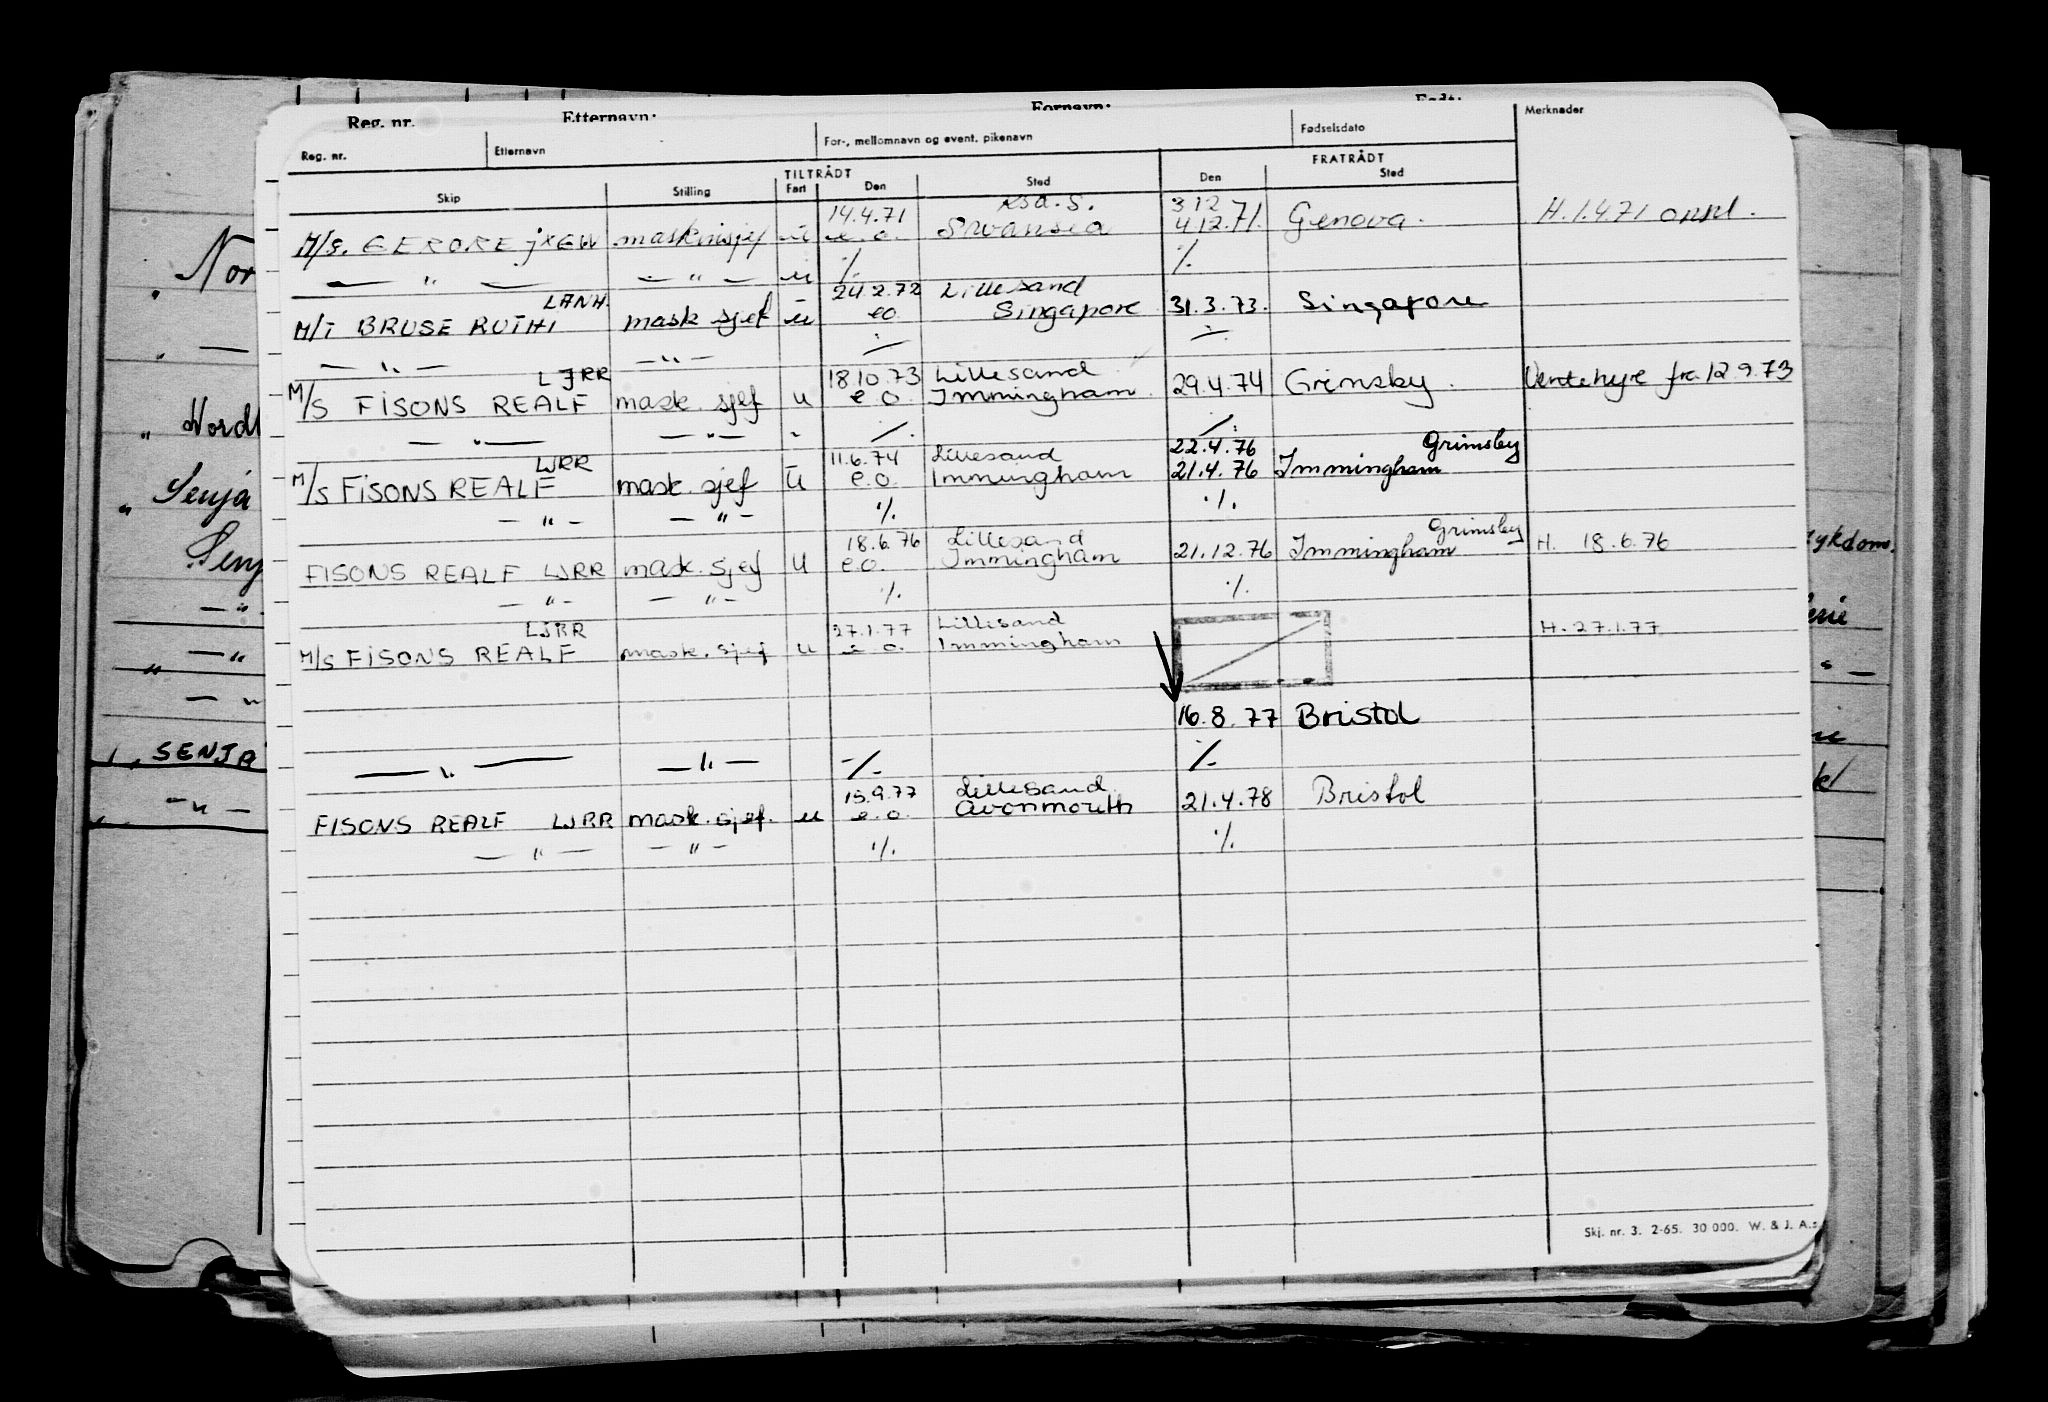 Reg. nr. Etternavn: Fornavn: Født:
Reg. nr. Etternavn For-, mellomnavn og event. pikenavn Fødselsdato Merknader
TILTRÅDT FRATRÅDT
Skip Stilling Fart Den Sted Den Sted
14.4.71 Ksd. S. 3 12
M/S. GERORE JXGW maskinsjef u e.o. Swansea 4.12.71. Genova. H. 1.4.71
— " — — " — u ./. ./.
LANH. 24.2.72 Lillesand
M/T BRUSE RUTH mask sjef u eo. Singapore 31.3.73. Singapore
— " — — " — ./. ./.
LJRR 18.10.73 Lillesand
M/S FISONS REALF mask. sjef u e.o. Immingham. 29.4.74 Grimsby. Ventehyre fra 12.9.73
— " — — " — " ./. ./.
LJRR 11.6.74 Lillesand 22.4.76 Grimsby
M/S FISONS REALF mask. sjef u e.o. Immingham 21.4.76 Immingham
— " — — " — ./. ./.
18.6.76 Lillesand Grimsby
FISONS REALF LJRR mask. sjef u e.o. Immingham 21.12.76 Immingham H. 18.6.76
— " — — " — ./. ./.
LJRR 27.1.77 Lillesand
M/S FISONS REALF mask. sjef u e.o. Immingham H. 27.1.77
16.8.77 Bristol
— " — — " — ./. ./.
15.9.77 Lillesand
FISONS REALF LJRR mask. sjef. u e.o. Avonmouth 21.4.78 Bristol
— " — — " — ./. ./.
Skj. nr. 3. 2-65. 30 000. W. & J. A.s
" Nor
" —
" Nordl
" Senja
Senj
— " —
" — "
— "
" SENJA
— " —
sykdom.